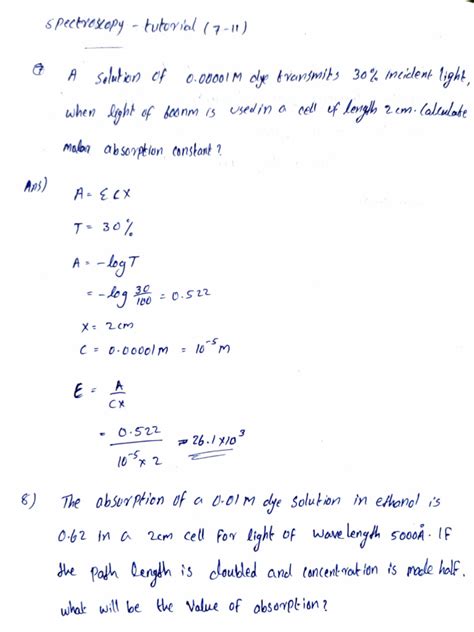 spectroscopy - tutorial (7-11)
⑦ A solution of 0.00001M dye transmits 30% incident light,
when light of 600nm is used in a cell of length 2cm. Calculate
molar absorption constant?
Ans)
A = ƐCX
T = 30%
A = -logT
= -log 30/100 = 0.522
X = 2cm
C = 0.00001M = 10⁻⁵ M
E = A/CX
= 0.522/10⁻⁵ x 2 = 26.1x10³
8) The absorption of a 0.01M dye solution in ethanol is
0.62 in a 2cm cell for light of wavelength 5000Å. If
the path length is doubled and concentration is made half.
what will be the value of absorption?